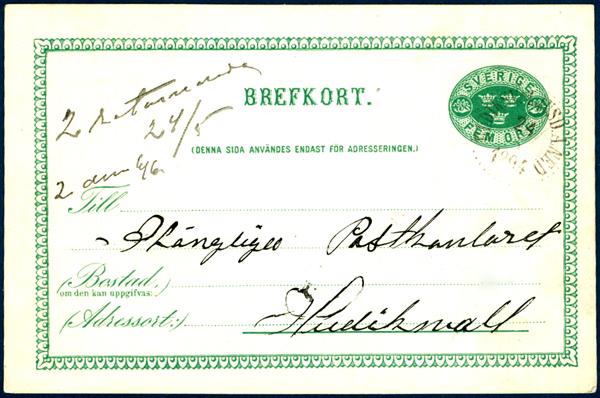 BREFKORT.
SVERIGE
FEM ÖRE
2 returnerade
24/5
(DENNA SIDA ANVÄNDES ENDAST FÖR ADRESSERINGEN.)
2 dem 6/6
Till
Postkontoret
(Bostad.
om den kan uppgifvas:)
(Adressort:)
Hudiksvall